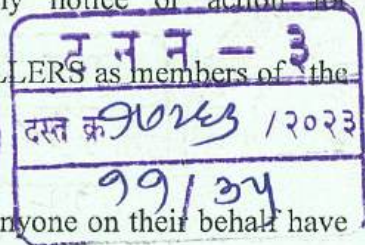 ly notice or action for
ट न न – ३
LLERS as members of the
दस्त क्र १७२६३ / २०२३
११ / ३५
nyone on their behalf have